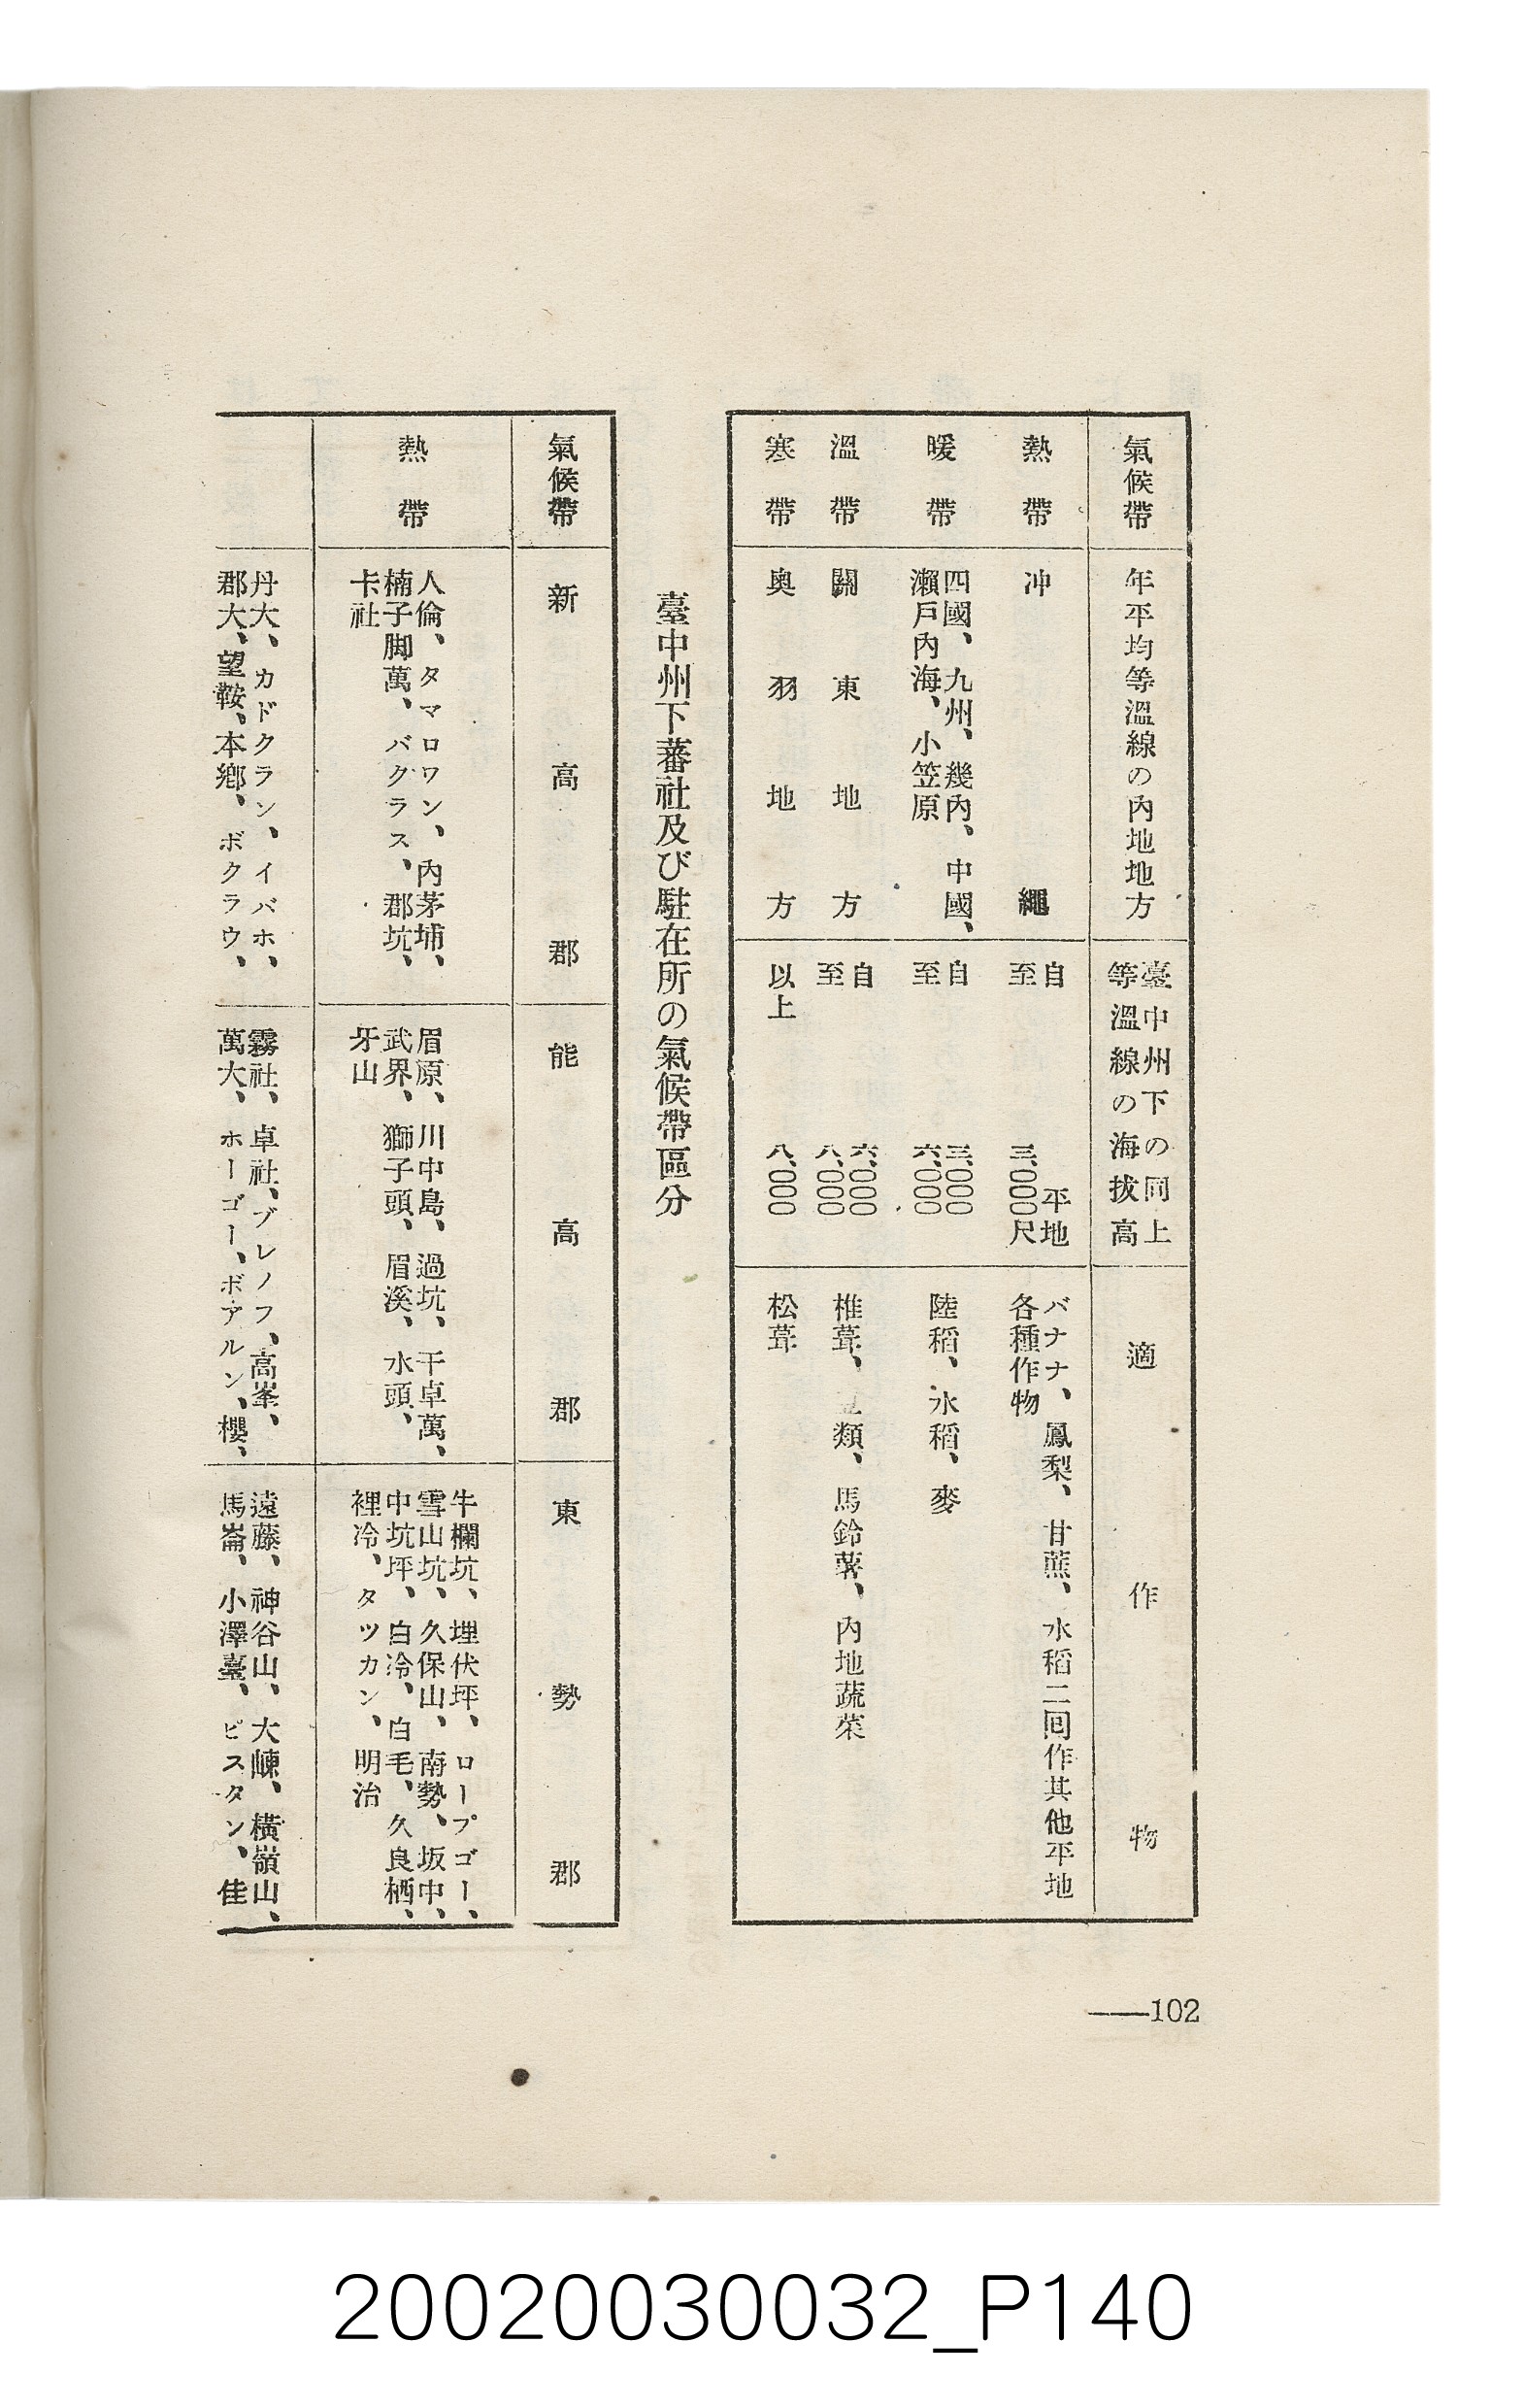 氣候帶
年平均等溫線の內地地方
臺中州下の同上
等溫線の海拔高
適作物
熱帶
冲繩
自平地
至三、〇〇〇尺
バナナ、鳳梨、甘蔗、水稻二囘作其他平地
各種作物
暖帶
四國、九州、幾內、中國、
瀨戶內海、小笠原
自三、〇〇〇
至六、〇〇〇
陸稻、水稻、麥
溫帶
關東地方
自六、〇〇〇
至八、〇〇〇
椎茸、類、馬鈴薯、內地蔬菜
寒帶
奧羽地方
以上八、〇〇〇
松茸
臺中州下蕃社及び駐在所の氣候帶區分
氣候帶
新高郡
能高郡
東勢郡
熱帶
人倫、タマロワン、內茅埔、
楠子脚萬、バクラス、郡坑、
卡社
眉原、川中島、過坑、干卓萬、
武界、獅子頭、眉溪、水頭、
牙山
牛欄坑、埋伏坪、ロープゴー、
雪山坑、久保山、南勢、坂中、
中坑坪、白冷、白毛、久良栖、
裡冷、タツカン、明治
丹大、カドクラン、イバホ、
郡大、望鞍、本鄉、ボクラウ、
霧社、卓社、ブレノフ、高峯、
萬大、ホーゴー、ボアルン、櫻、
遠藤、神谷山、大崠、橫嶺山、
馬崙、小澤臺、ビスタン、佳
——102
20020030032_P140